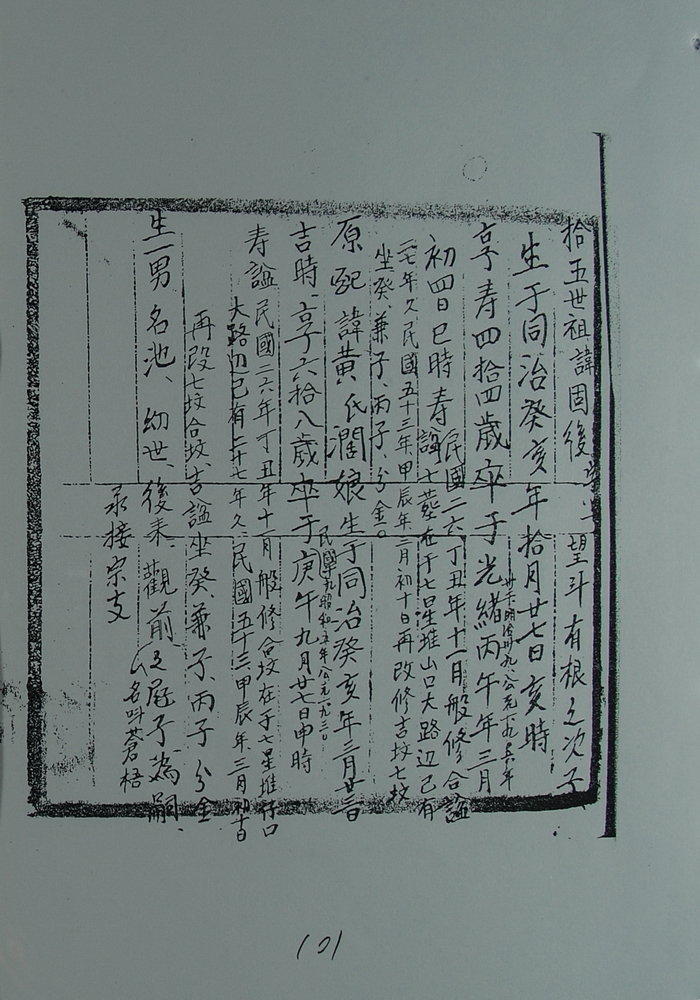 拾五世祖諱固後 望斗有根之次子
生于同治癸亥年拾月廿七日亥時
享寿四拾四歲卒于光緒丙午年三月
卅六明治卅九、公元一九〇六年
初四日巳時寿謚 民國二六丁丑年十一月般修合謚
十葬在于七星堆山口大路辺已有
二七年久民國五十三年甲辰年三月初十日再改修吉坟七坟
坐癸、兼子、丙子、分金。
原配諱黃氏潤娘生于同治癸亥年三月廿三日
民國九昭和五年公元一九三〇
吉時、享六拾八歲卒于庚午九月廿七日申時
寿謚民國二六年丁丑年十一月般修合坟在于七星堆仔口
大路辺已有二十七年久、民國五十三甲辰年三月初十日
再改七坟合坟、吉謚坐癸、兼子、丙子分金
生一男名池、幼世、後來、觀前之屘子為嗣、
名叫蒼梧
承接宗支
101